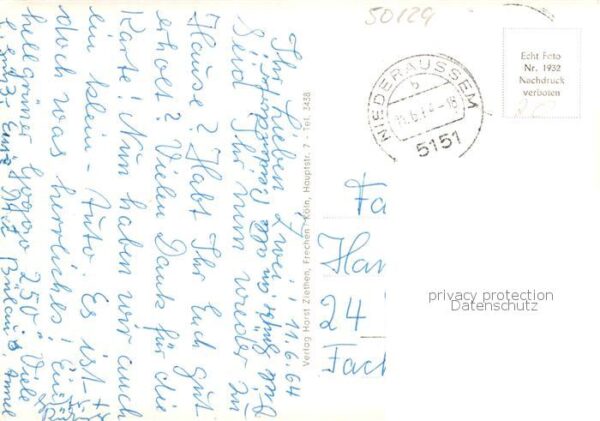 50129
Echt Foto
Nr. 1932
Nachdruck
verboten
NIEDERAUSSEM
b
5151
Ihr lieben Zwei! 11.6.64
Seid Ihr nun wieder zu
Hause? Habt Ihr Euch gut
erholt? Vielen Dank für die
Karte! Nun haben wir auch
ein klein-Auto. Es ist
doch was herrliches!
hellgrüner Goggo 250. Viele
Verlag Horst Ziethen, Frechen-Köln, Hauptstr. 7 · Tel. 3428
Fa
Han
24
Fach
privacy protection
Datenschutz